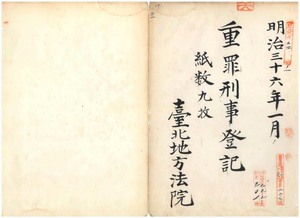 明治三十六年一月
重罪刑事登記
紙数九枚
臺北地方法院